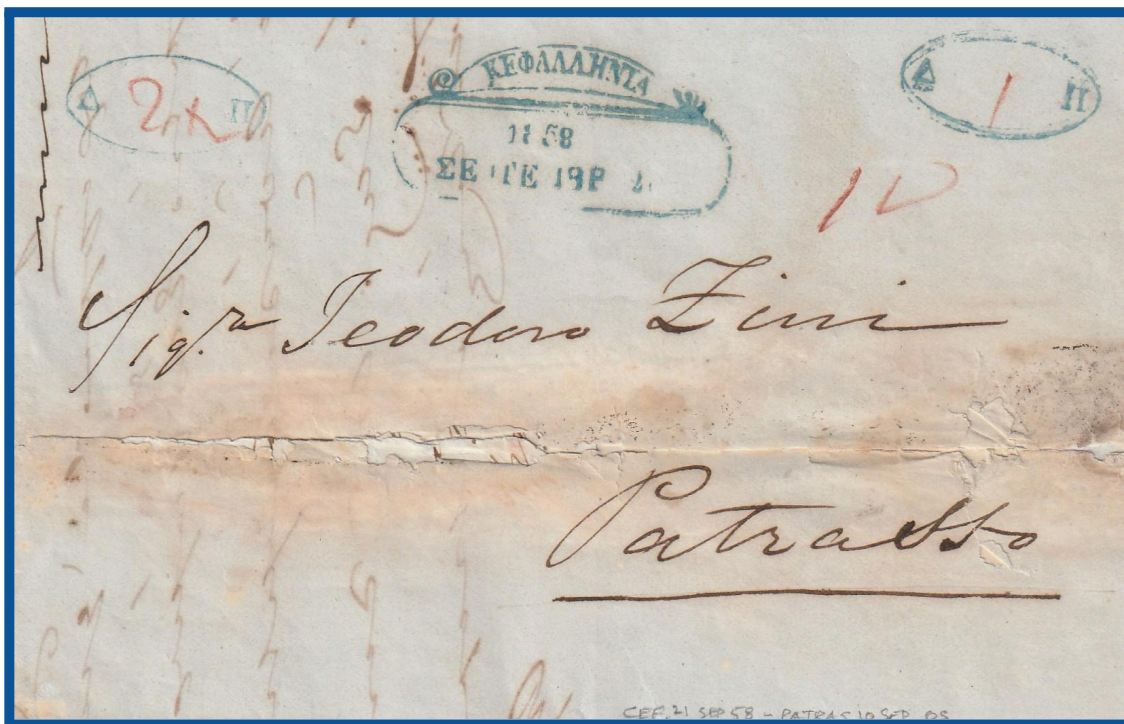 ΚΕΦΑΛΛΗΝΙΑ
1858
Δ 2 Π
Δ 1 Π
10
Sig.r Teodoro Zini
Patrasso
CEF. 21 SEP 58 - PATRAS 10 SEP OS